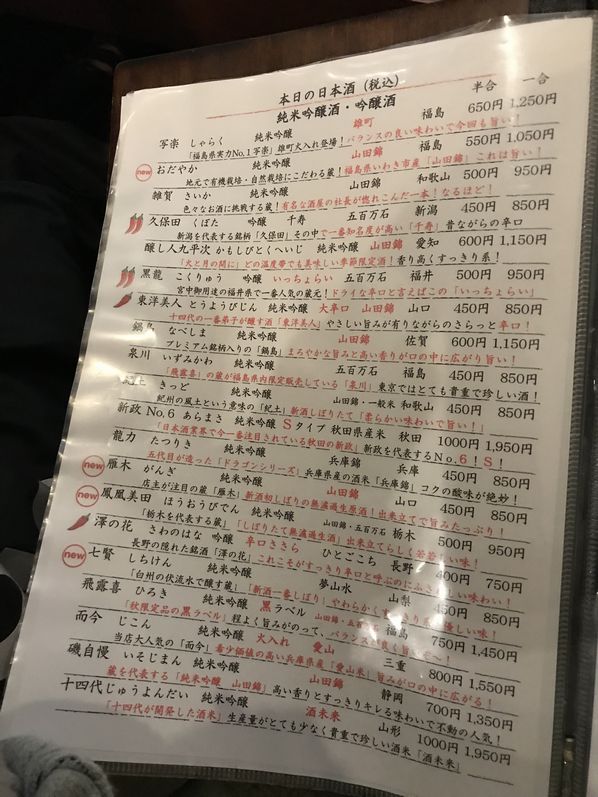 本日の日本酒(税込)
純米吟醸酒・吟醸酒 半合 一合
写楽 しゃらく 純米吟醸 雄町 福島 650円 1,250円
「福島県実力No.1写楽」雄町火入れ登場!バランスの良い味わいで今回も旨い!
new おだやか 純米吟醸 山田錦 福島 550円 1,050円
地元で有機栽培・自然栽培にこだわる蔵!福島県いわき市産「山田錦」これは旨い!
雑賀 さいか 純米吟醸 山田錦 和歌山 500円 950円
色々なお酒に挑戦する蔵!有名な酒屋の社長が惚れこんだ一本!なるほど!
久保田 くぼた 吟醸 千寿 五百万石 新潟 450円 850円
新潟を代表する銘柄「久保田」その中で一番知名度が高い「千寿」昔ながらの辛口
醸し人九平次 かもしびとくへいじ 純米吟醸 山田錦 愛知 600円 1,150円
「火と月の間に」どの温度帯でも美味しい季節限定酒!香り高くすっきり系!
黒龍 こくりゅう 吟醸 いっちょらい 五百万石 福井 500円 950円
宮中御用達の福井県で一番人気の蔵元!ドライな辛口と言えばこの「いっちょらい」
東洋美人 とうようびじん 純米吟醸 大辛口 山田錦 山口 450円 850円
十四代の一番弟子が醸す酒「東洋美人」やさしい旨みが有りながらのさらっと辛口!
鍋島 なべしま 純米吟醸 山田錦 佐賀 600円 1,150円
プレミアム銘柄入りの「鍋島」まろやかな旨みと高い香りが口の中に広がり旨い!
泉川 いずみかわ 純米吟醸 五百万石 福島 450円 850円
「飛露喜」の蔵が福島県内限定販売している「泉川」東京ではとても貴重で珍しい酒!
紀土 きっど 純米吟醸 山田錦・一般米 和歌山 450円 850円
紀州の風土という意味の「紀土」新酒しぼりたて「柔らかい味わいで旨い!」
新政 No.6 あらまさ 純米吟醸 Sタイプ 秋田県産米 秋田 1000円 1,950円
「日本酒業界で今一番注目されている秋田の新政」新政を代表するNo.6!S!
龍力 たつりき 純米吟醸 兵庫錦 兵庫 450円 850円
五代目が造った「ドラゴンシリーズ」兵庫県産の酒米「兵庫錦」コクの酸味が絶妙!
new 雁木 がんぎ 純米吟醸 山田錦 山口 450円 850円
店主が注目の蔵「雁木」新酒初しぼりの無濾過生原酒!出来立てで旨みたっぷり!
new 鳳凰美田 ほうおうびでん 純米吟醸 山田錦・五百万石 栃木 450円 850円
「栃木を代表する蔵」「しぼりたて無濾過生酒」出来立てらしく若若しい味!
澤の花 さわのはな 吟醸 辛口ささら ひとごこち 長野 500円 950円
長野の隠れた銘酒「澤の花」これこそがすっきり辛口と呼ぶのにふさわしい味わい!
new 七賢 しちけん 純米吟醸 夢山水 山梨 400円 750円
「白州の伏流水で醸す蔵」「新酒一番しぼり」やわらかくすっきり優しい味!
飛露喜 ひろき 純米吟醸 黒ラベル 山田錦・五百万石 福島 450円 850円
「秋限定品の黒ラベル」程よく旨みがのって、バランスが良く旨い〜!
而今 じこん 純米吟醸 火入れ 愛山 三重 750円 1,450円
当店大人気の「而今」希少価値の高い兵庫県産「愛山米」旨みが口の中に広がる!
磯自慢 いそじまん 純米吟醸 山田錦 静岡 800円 1,550円
蔵を代表する「純米吟醸 山田錦」高い香りとすっきりキレる味わいで不動の人気!
十四代 じゅうよんだい 純米吟醸 酒未来 山形 700円 1,350円
「十四代が開発した酒米」生産量がとても少なく貴重で珍しい酒米「酒未来」 1000円 1,950円